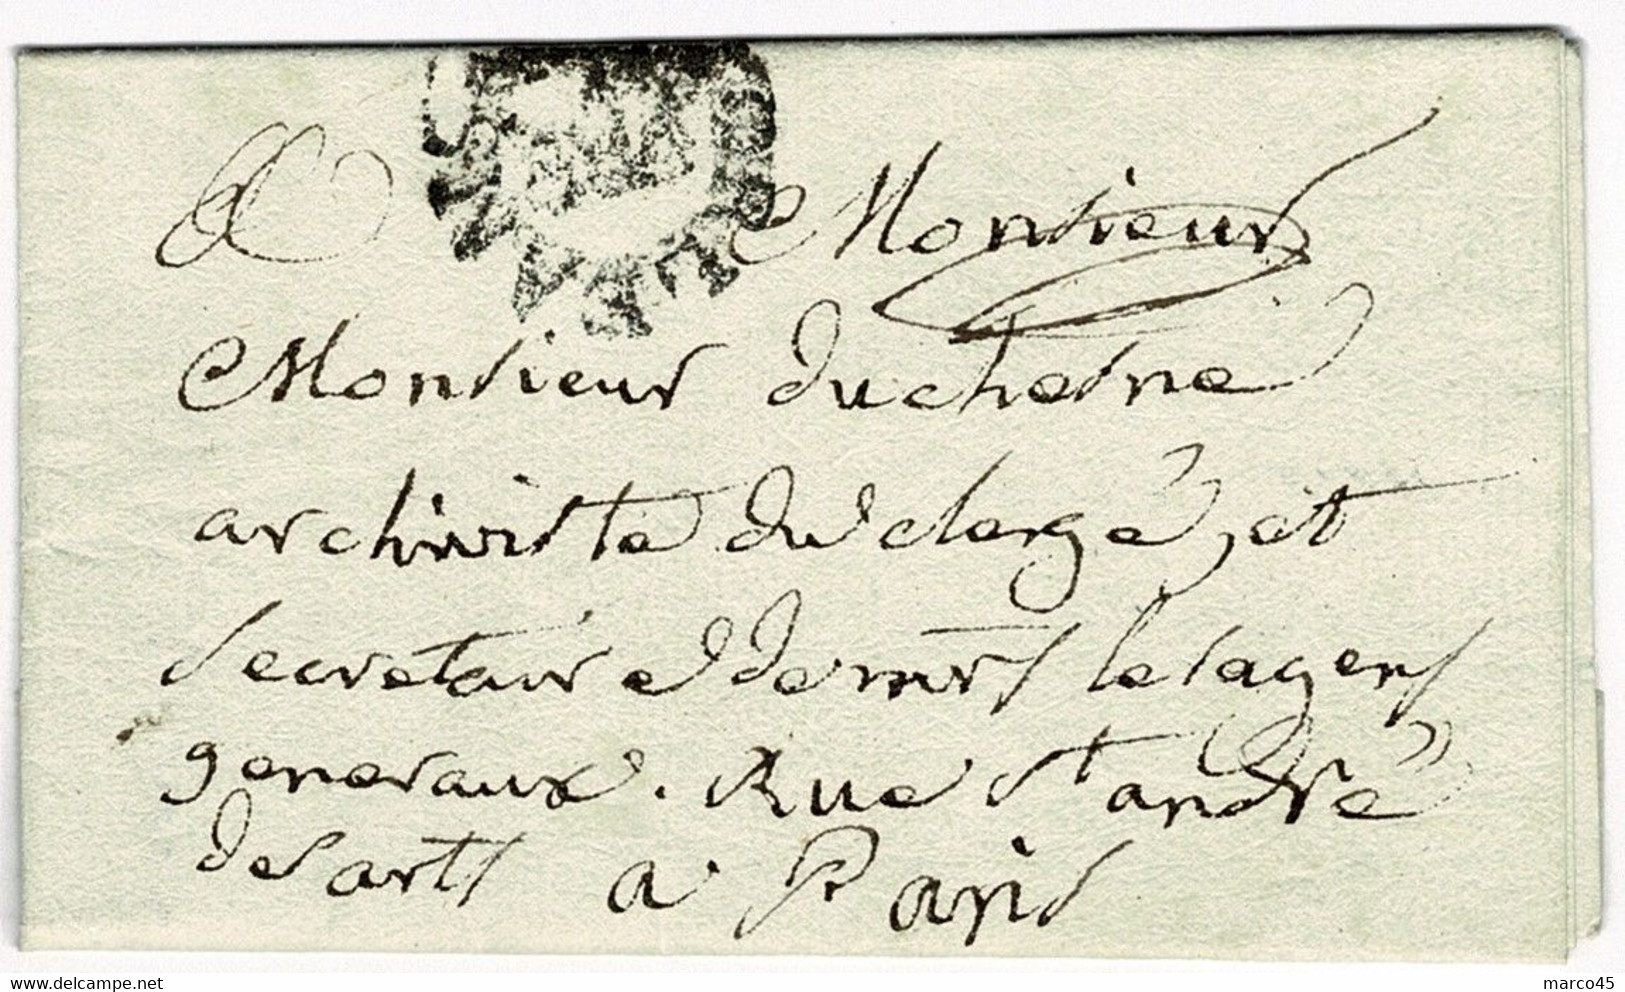 A Monsieur
Monsieur duchesne
archiviste du clergé, et
secretaire de mrs les agens
generaux. Rue st andré
des arts a Paris
delcampe.net
marco45